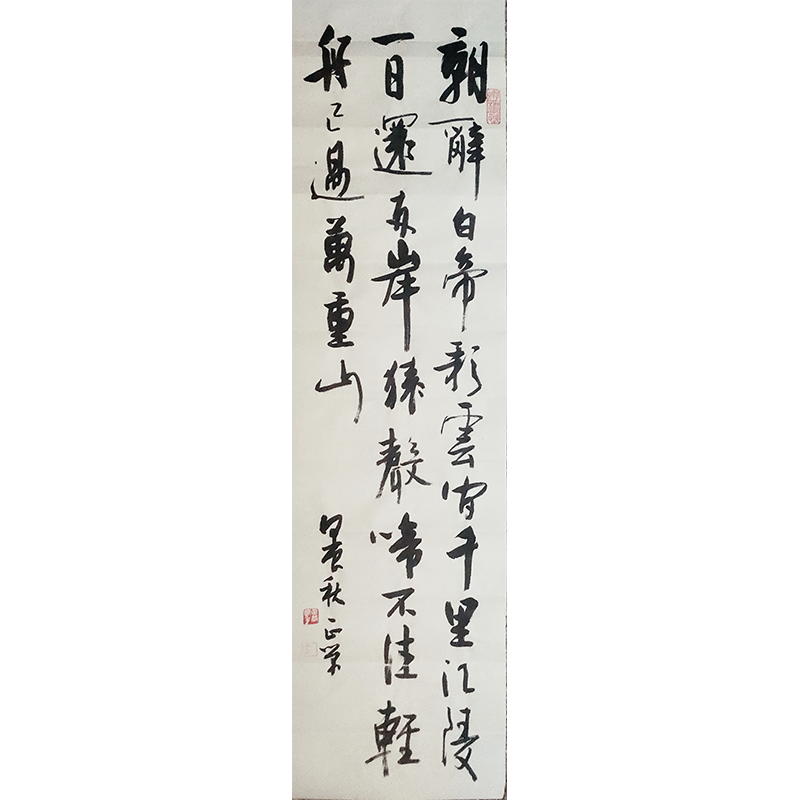 朝辭白帝彩雲間千里江陵
一日還兩岸猿聲啼不住輕
舟已過萬重山
秋正